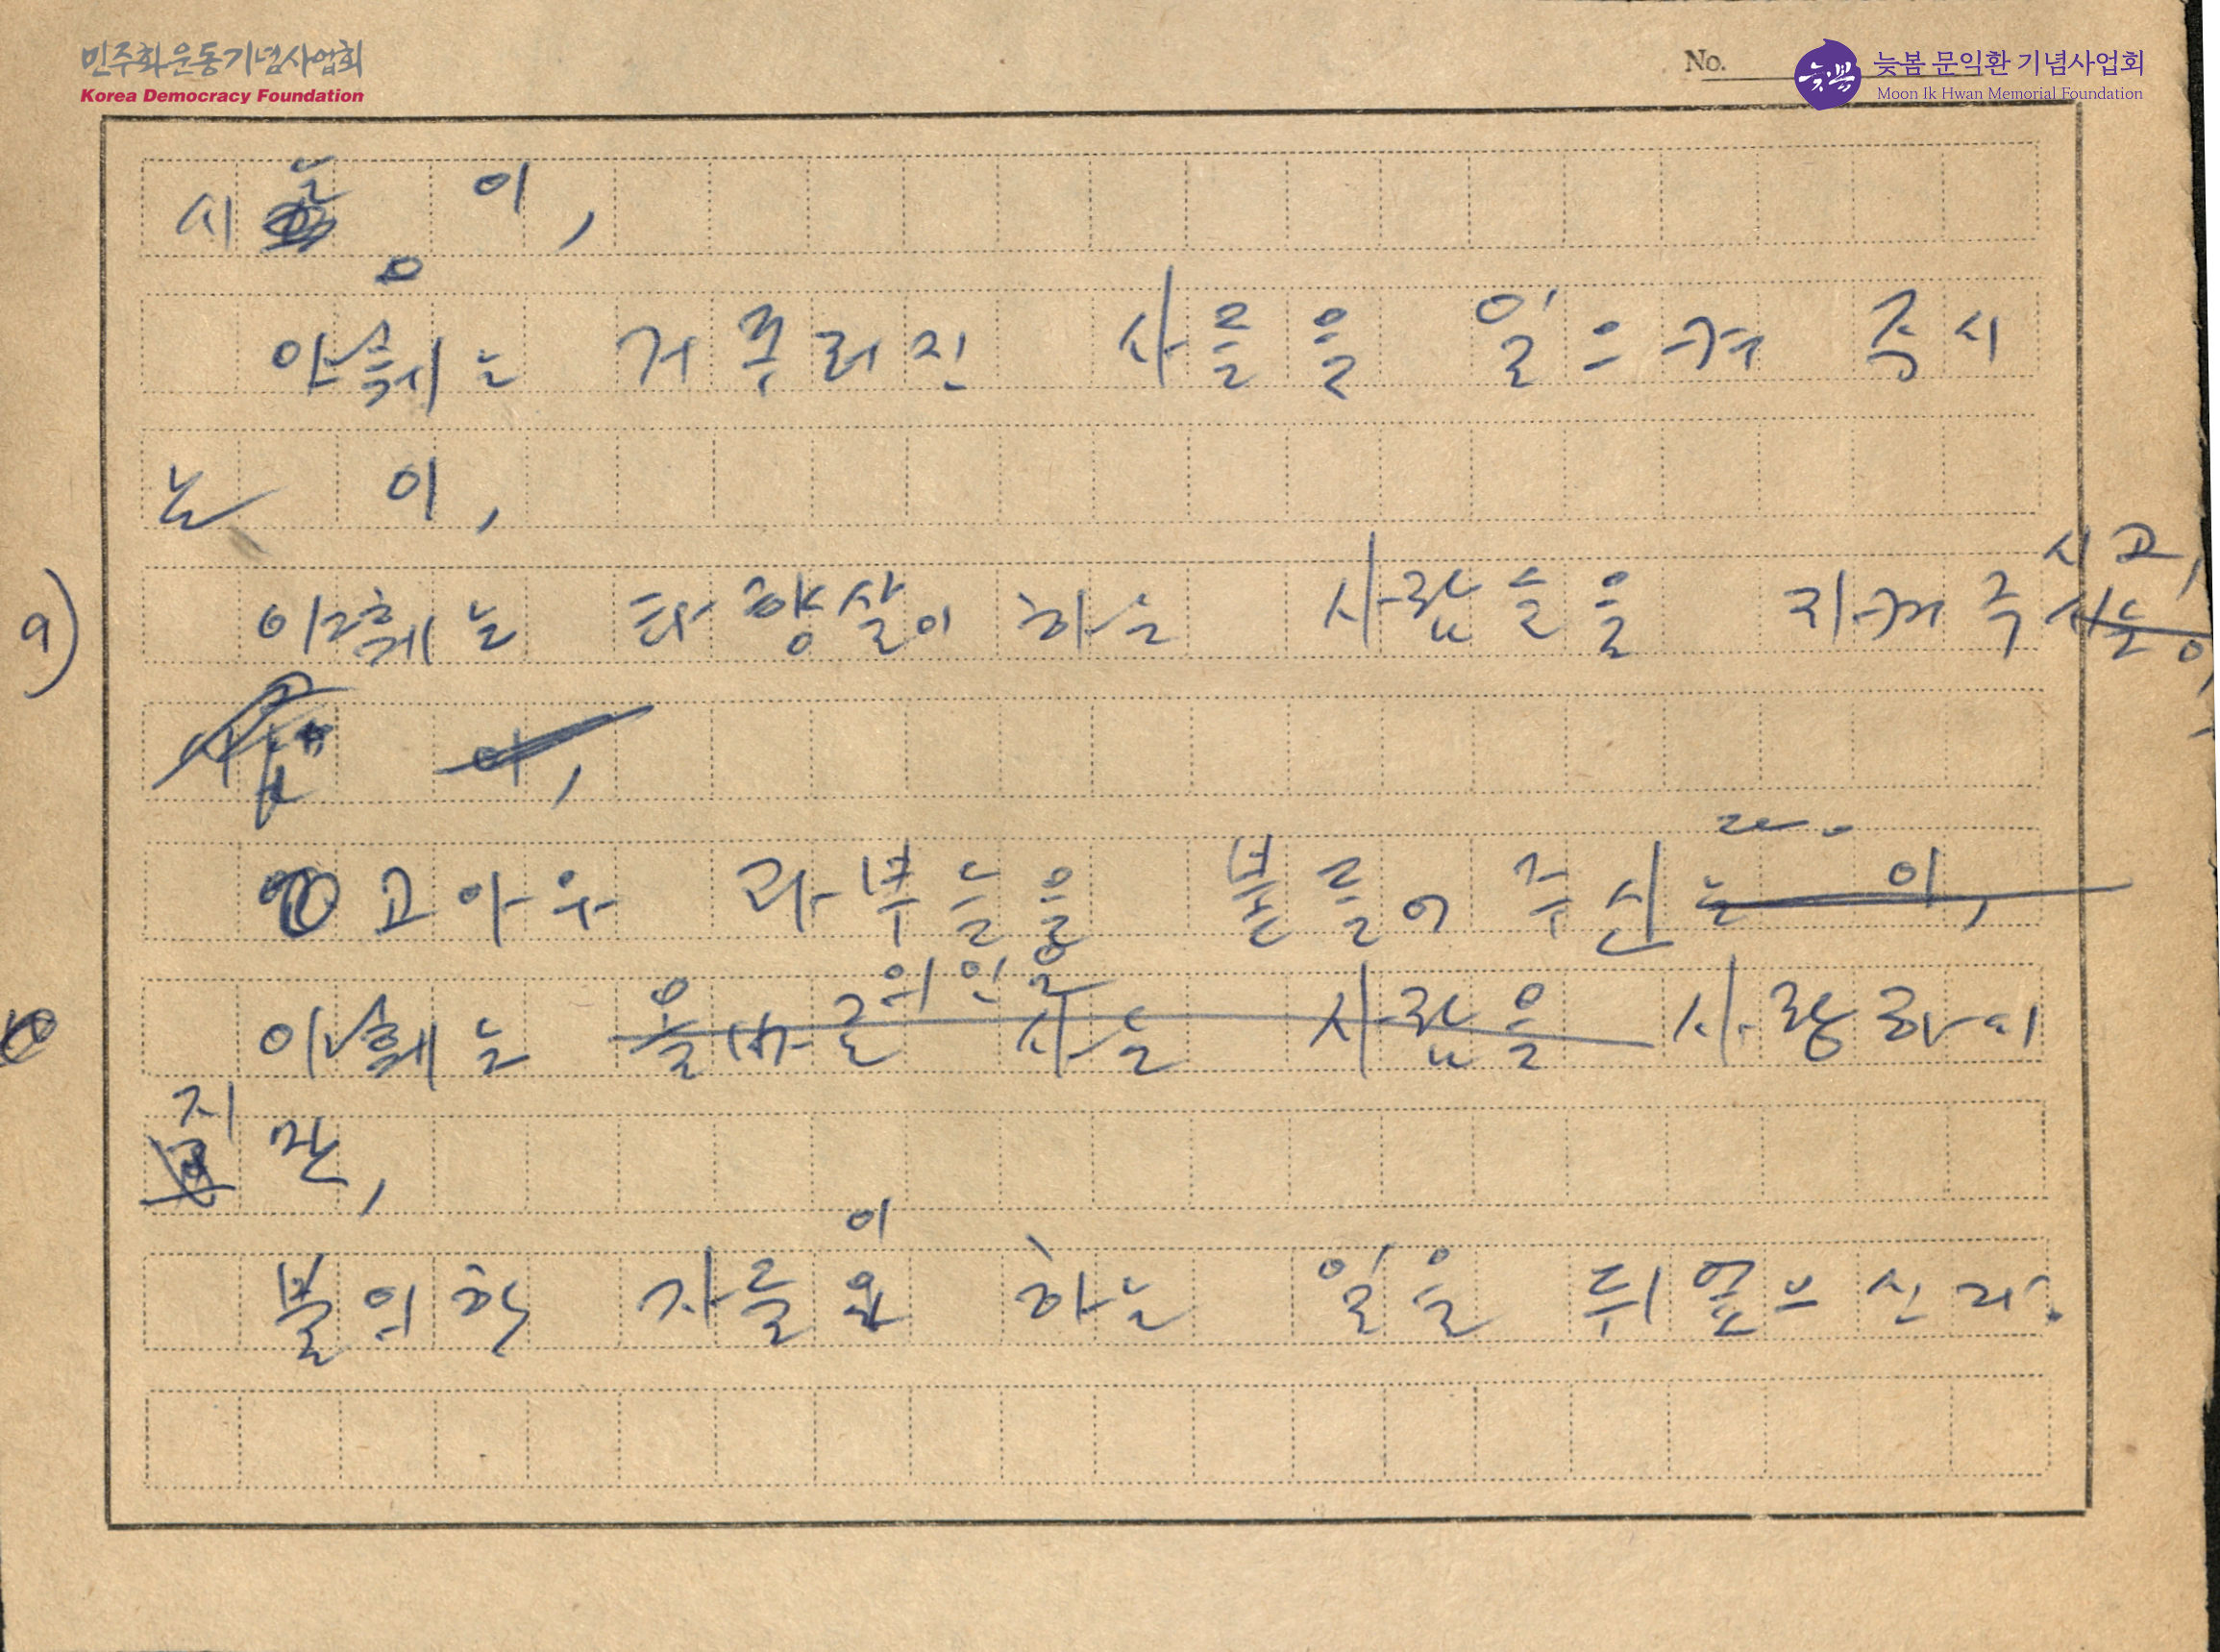 민주화운동기념사업회
Korea Democracy Foundation
No.
늦봄 문익환 기념사업회
Moon Ik Hwan Memorial Foundation
시는 이,
야훼는 거꾸러진 사를을 일으켜 주시
는 이,
9) 야훼는 타향살이 하는 사람들을 지켜주시고,
고아와 과부들을 붙들어 주신다.
야훼는 의인을 사랑하시
지만,
불의한 자들이 하는 일을 뒤엎으신다.